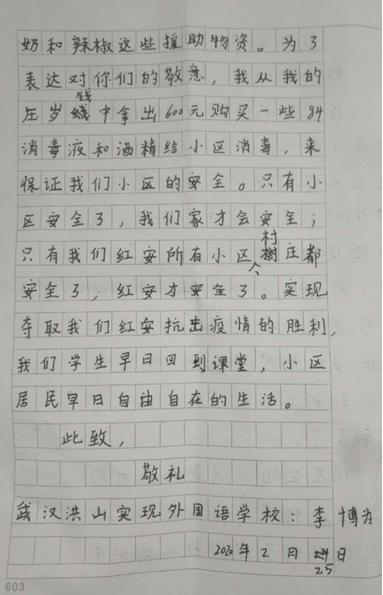 奶和辣椒这些援助物资。为了
表达对你们的敬意，我从我的
压岁钱中拿出600元购买一些84
消毒液和酒精给小区消毒，来
保证我们小区的安全。只有小
区安全了，我们家才会安全；
只有我们红安所有小区、村庄都
安全了，红安才安全了。实现
夺取我们红安抗击疫情的胜利，
我们学生早日回到课堂，小区
居民早日自由自在的生活。
此致，
敬礼
武汉洪山实现外国语学校：李博为
2020年2月25日
603